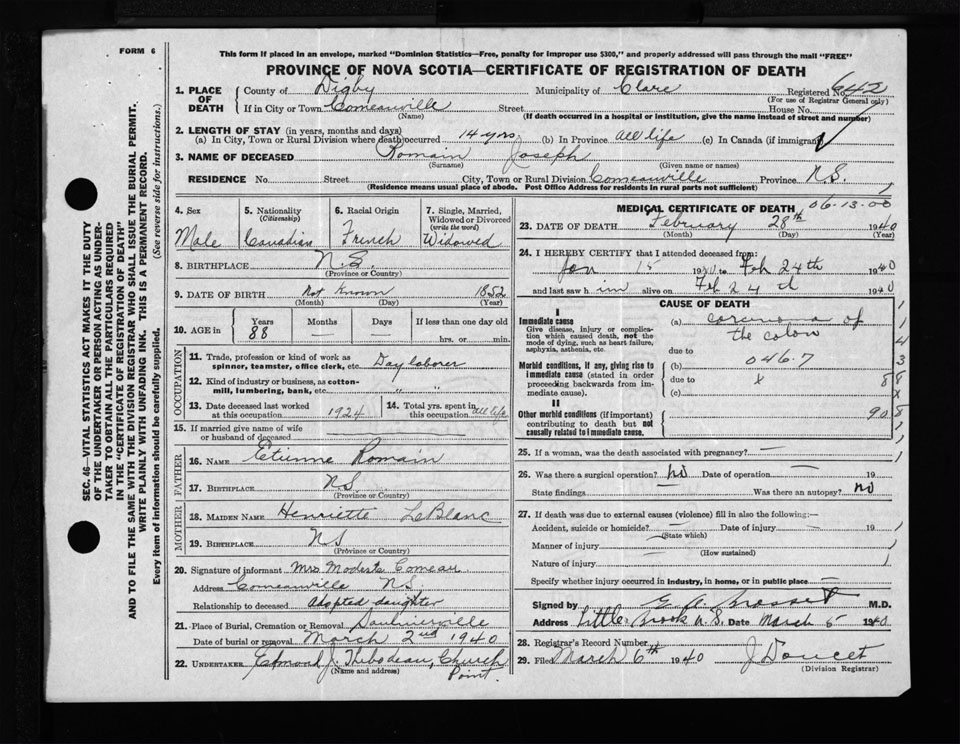 FORM 6
This form if placed in an envelope, marked "Dominion Statistics—Free, penalty for improper use $300," and properly addressed will pass through the mail "FREE"
PROVINCE OF NOVA SCOTIA—CERTIFICATE OF REGISTRATION OF DEATH
SEC. 46—VITAL STATISTICS ACT MAKES IT THE DUTY
OF THE UNDERTAKER OR PERSON ACTING AS UNDER-
TAKER TO OBTAIN ALL THE PARTICULARS REQUIRED
IN THE "CERTIFICATE OF REGISTRATION OF DEATH"
AND TO FILE THE SAME WITH THE DIVISION REGISTRAR WHO SHALL ISSUE THE BURIAL PERMIT.
WRITE PLAINLY WITH UNFADING INK. THIS IS A PERMANENT RECORD.
Every item of information should be carefully supplied. (See reverse side for instructions.)
1. PLACE OF DEATH County of Digby Municipality of Clare Registered No. 642
(For use of Registrar General only)
If in City or Town Comeauville Street House No.
(Name) (If death occurred in a hospital or institution, give the name instead of street and number)
2. LENGTH OF STAY (in years, months and days)
(a) In City, Town or Rural Division where death occurred 14 yrs (b) In Province all life (c) In Canada (if immigrant)
3. NAME OF DECEASED Romain Joseph
(Surname) (Given name or names)
RESIDENCE No. Street City, Town or Rural Division Comeauville Province N.S.
(Residence means usual place of abode. Post Office Address for residents in rural parts not sufficient)
4. Sex 5. Nationality (Citizenship) 6. Racial Origin 7. Single, Married, Widowed or Divorced (write the word)
Male Canadian French Widowed
8. BIRTHPLACE N.S.
(Province or Country)
9. DATE OF BIRTH Not Known 1852
(Month) (Day) (Year)
10. AGE in Years Months Days If less than one day old
88 — — hrs. or min.
OCCUPATION
11. Trade, profession or kind of work as spinner, teamster, office clerk, etc. Day laborer
12. Kind of industry or business, as cotton-mill, lumbering, bank, etc. " "
13. Date deceased last worked at this occupation 1924 14. Total yrs. spent in this occupation all life
15. If married give name of wife or husband of deceased —
FATHER
16. NAME Etienne Romain
17. BIRTHPLACE N.S.
(Province or Country)
MOTHER
18. MAIDEN NAME Henriette LeBlanc
19. BIRTHPLACE N S
(Province or Country)
20. Signature of informant Mrs Modeste Comeau
Address Comeauville N.S.
Relationship to deceased adopted daughter
21. Place of Burial, Cremation or Removal Saulnierville
Date of burial or removal March 2nd 1940
22. UNDERTAKER Edmond J. Thibodeau, Church Point.
(Name and address)
MEDICAL CERTIFICATE OF DEATH 06-13-00
23. DATE OF DEATH February 28th 1940
(Month) (Day) (Year)
24. I HEREBY CERTIFY that I attended deceased from:
Jan 15 1940 to Feb 24th 1940
and last saw him alive on Feb 24th 1940
CAUSE OF DEATH
I
Immediate cause
Give disease, injury or complication which caused death, not the mode of dying, such as heart failure, asphyxia, asthenia, etc.
(a) carcinoma of the colon
due to
Morbid conditions, if any, giving rise to immediate cause (stated in order proceeding backwards from immediate cause).
(b) 046.7
due to x 8
(c)
II
Other morbid conditions (if important) contributing to death but not causally related to immediate cause.
90
1 1 4 3 8 x 8 1 1
25. If a woman, was the death associated with pregnancy? —
26. Was there a surgical operation? no Date of operation — 19
State findings Was there an autopsy? no
27. If death was due to external causes (violence) fill in also the following:—
Accident, suicide or homicide? — Date of injury — 19
(State which)
Manner of injury —
(How sustained)
Nature of injury —
Specify whether injury occurred in industry, in home, or in public place —
Signed by M.D.
Address Little Brook N.S. Date March 5 1940
28. Registrar's Record Number
29. Filed March 6th 1940 J Doucet
(Division Registrar)